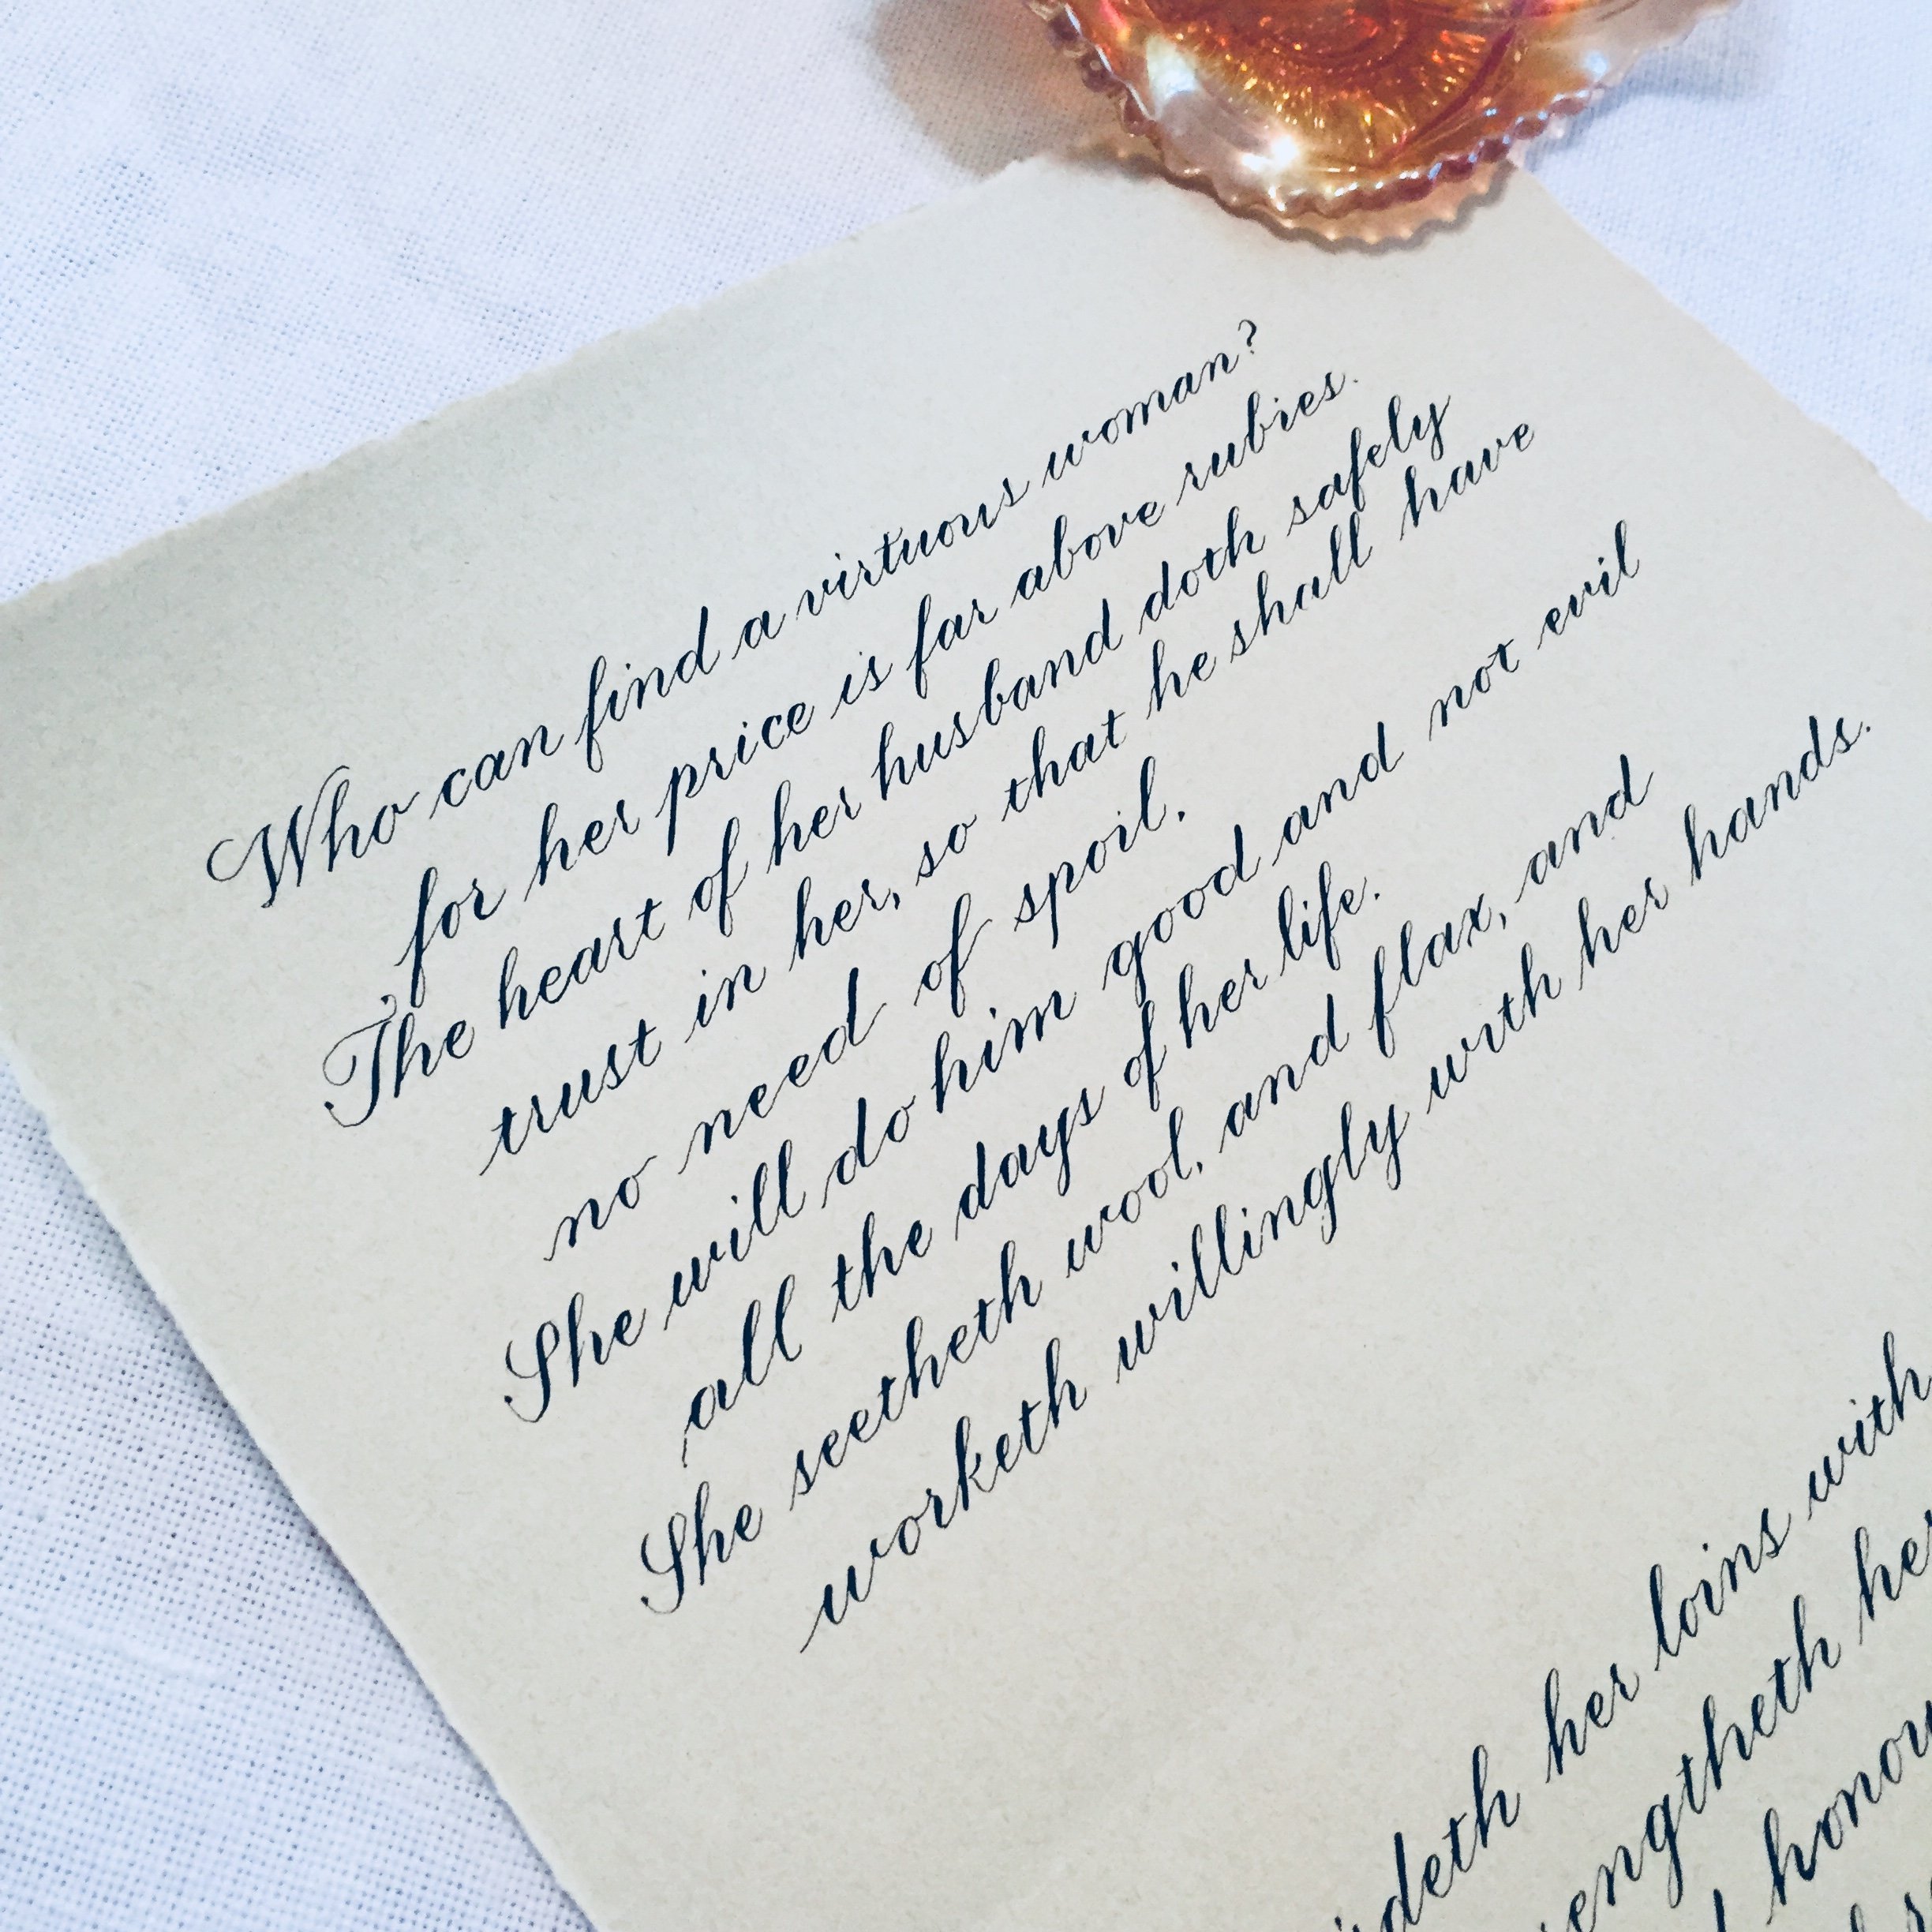 Who can find a virtuous woman?
for her price is far above rubies.
The heart of her husband doth safely
trust in her, so that he shall have
no need of spoil.
She will do him good and not evil
all the days of her life.
She seetheth wool, and flax, and
worketh willingly with her hands.
deth her loins with
engtheth her
honou